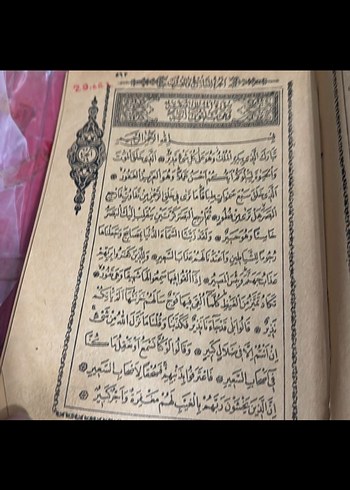 بِسْمِ اللهِ الرَّحْمٰنِ الرَّحِيمِ
تَبَارَكَ الَّذِي بِيَدِهِ الْمُلْكُ وَهُوَ عَلَى كُلِّ شَيْءٍ قَدِيرٌ الَّذِي خَلَقَ الْمَوْتَ
وَالْحَيٰوةَ لِيَبْلُوَكُمْ اَيُّكُمْ اَحْسَنُ عَمَلًا وَهُوَ الْعَزِيزُ الْغَفُورُ
الَّذِي خَلَقَ سَبْعَ سَمٰوَاتٍ طِبَاقًا مَا تَرٰى فِي خَلْقِ الرَّحْمٰنِ مِنْ تَفَاوُتٍ فَارْجِعِ
الْبَصَرَ هَلْ تَرٰى مِنْ فُطُورٍ ثُمَّ ارْجِعِ الْبَصَرَ كَرَّتَيْنِ يَنْقَلِبْ اِلَيْكَ الْبَصَرُ
خَاسِئًا وَهُوَ حَسِيرٌ وَلَقَدْ زَيَّنَّا السَّمَاءَ الدُّنْيَا بِمَصَابِيحَ وَجَعَلْنَاهَا
رُجُومًا لِلشَّيَاطِينِ وَاَعْتَدْنَا لَهُمْ عَذَابَ السَّعِيرِ وَلِلَّذِينَ كَفَرُوا بِرَبِّهِمْ
عَذَابُ جَهَنَّمَ وَبِئْسَ الْمَصِيرُ اِذَا اُلْقُوا فِيهَا سَمِعُوا لَهَا شَهِيقًا وَهِيَ تَفُورُ
تَكَادُ تَمَيَّزُ مِنَ الْغَيْظِ كُلَّمَا اُلْقِيَ فِيهَا فَوْجٌ سَاَلَهُمْ خَزَنَتُهَا اَلَمْ يَاْتِكُمْ
نَذِيرٌ قَالُوا بَلٰى قَدْ جَاءَنَا نَذِيرٌ فَكَذَّبْنَا وَقُلْنَا مَا نَزَّلَ اللهُ مِنْ شَيْءٍ
اِنْ اَنْتُمْ اِلَّا فِي ضَلَالٍ كَبِيرٍ وَقَالُوا لَوْ كُنَّا نَسْمَعُ اَوْ نَعْقِلُ مَا كُنَّا
فِي اَصْحَابِ السَّعِيرِ فَاعْتَرَفُوا بِذَنْبِهِمْ فَسُحْقًا لِاَصْحَابِ السَّعِيرِ
اِنَّ الَّذِينَ يَخْشَوْنَ رَبَّهُمْ بِالْغَيْبِ لَهُمْ مَغْفِرَةٌ وَاَجْرٌ كَبِيرٌ